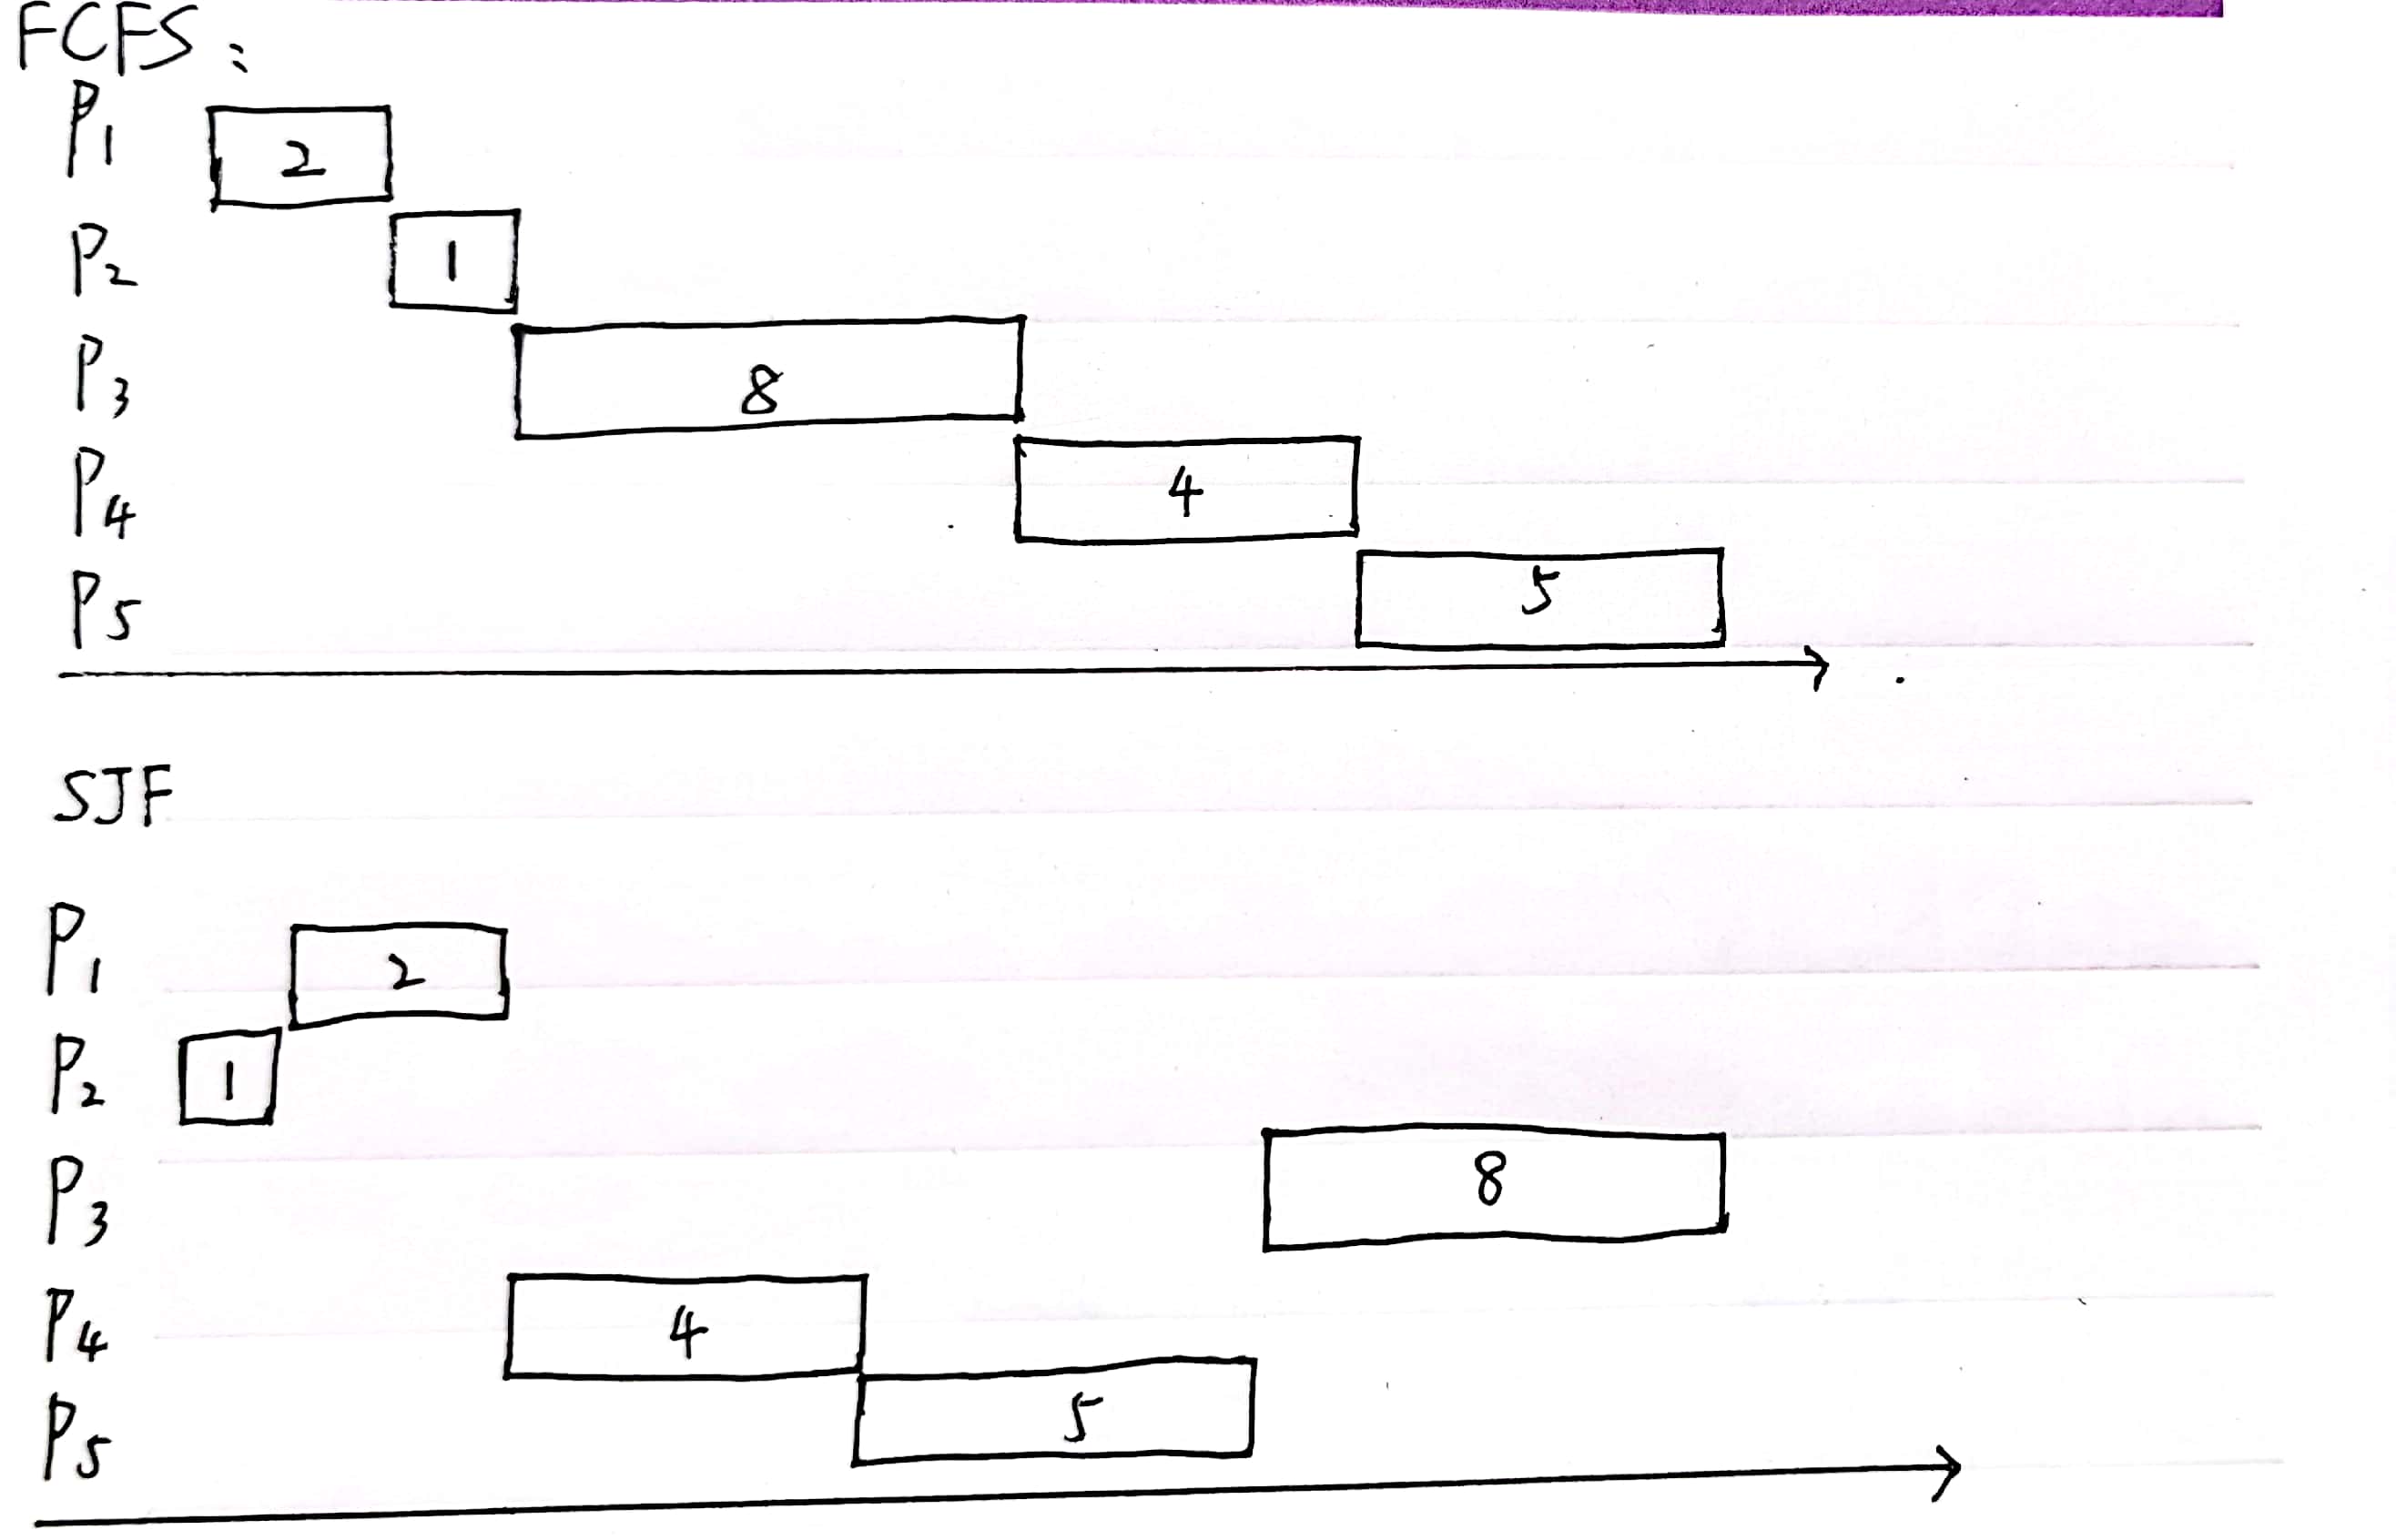 FCFS:
P1 2
P2 1
P3 8
P4 4
P5 5
SJF
P1 2
P2 1
P3 8
P4 4
P5 5